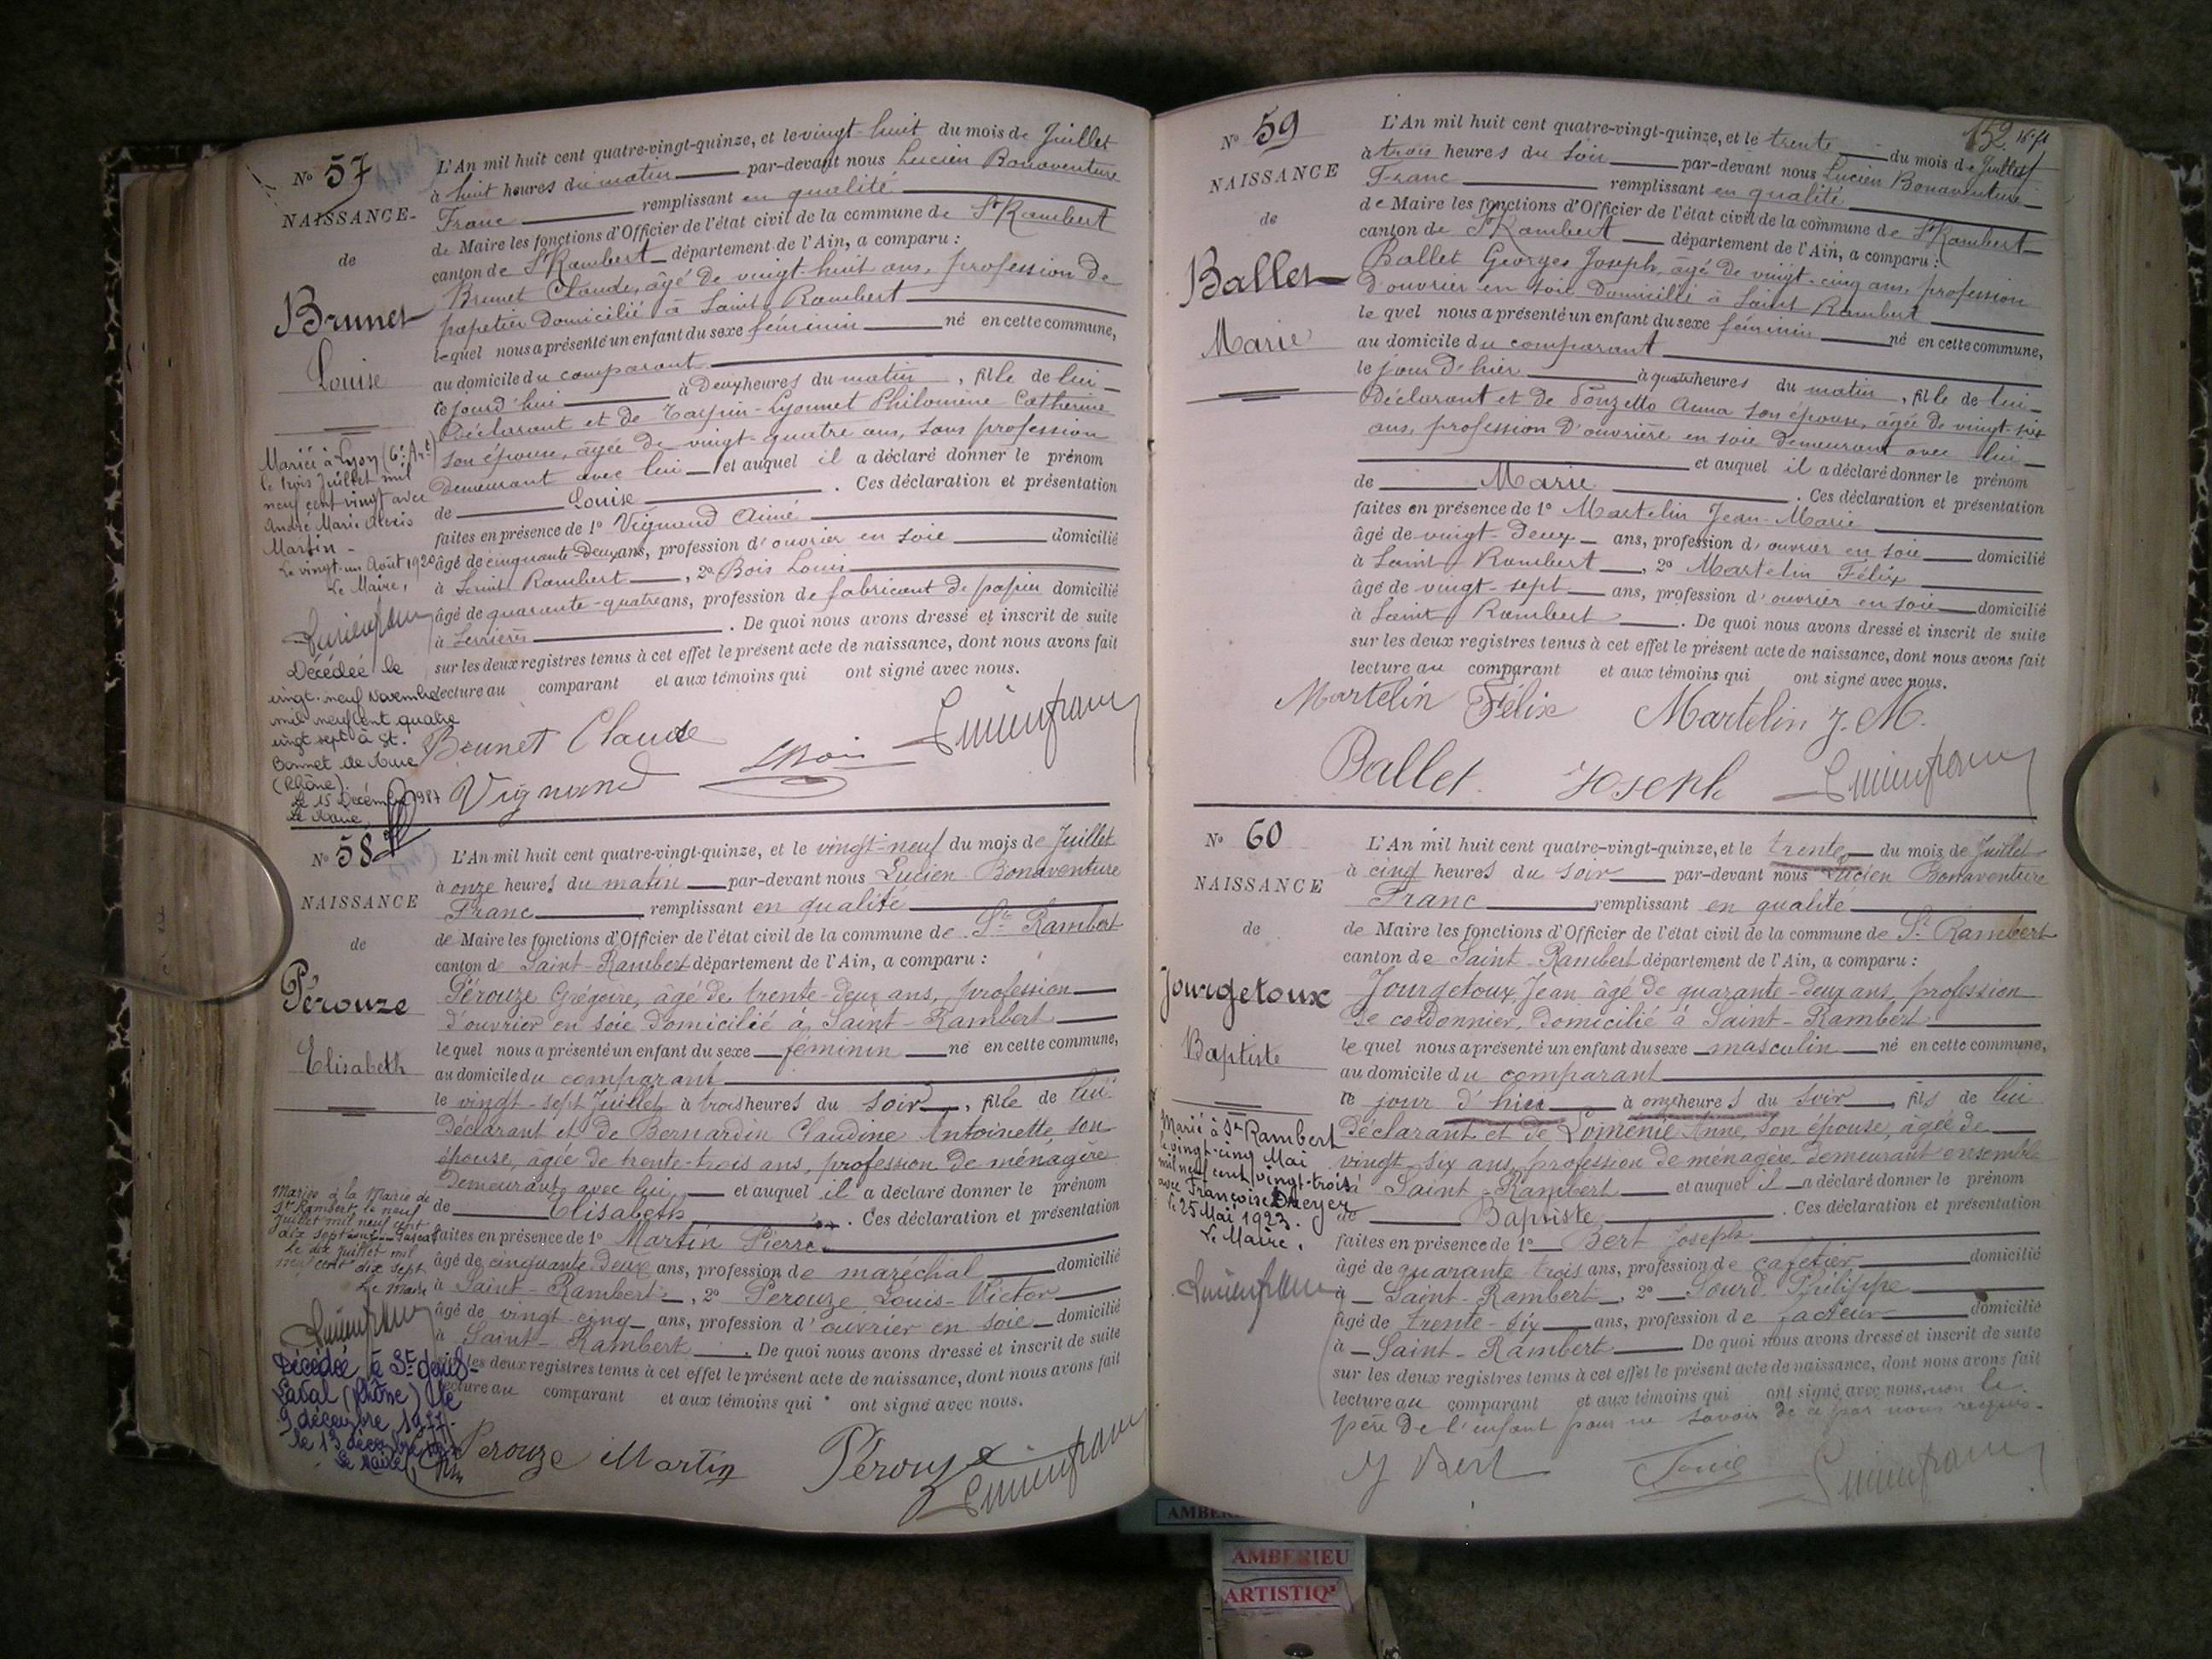 No 57
NAISSANCE
de
Brunet
Louise
Mariée à Lyon (6e Art)
le trois Juillet mil
neuf cent vingt avec
André Marie Alexis
Martin -
Le vingt-un Août 1920
Le Maire,
Lucien franc
Décédée le
vingt-neuf Novembre
mil neuf cent quatre
vingt sept à St.
Bonnet de Mure
(Rhône)
Le 15 Décembre 1987
Le Maire,
L'An mil huit cent quatre-vingt-quinze, et le vingt-huit du mois de Juillet
à huit heures du matin par-devant nous Lucien Bonaventure
Franc remplissant en qualité
de Maire les fonctions d'Officier de l'état civil de la commune de St Rambert
canton de St Rambert département de l'Ain, a comparu :
Brunet Claude, âgé de vingt-huit ans, profession de
papetier domicilié à Saint Rambert
lequel nous a présenté un enfant du sexe féminin né en cette commune,
au domicile du comparant
le jourd'hui à Deux heures du matin, fille de lui
Déclarant et de Tarpin-Lyonnet Philomène Catherine
son épouse, âgée de vingt-quatre ans, sans profession
demeurant avec lui et auquel il a déclaré donner le prénom
de Louise . Ces déclaration et présentation
faites en présence de 1o Vignand Aimé
âgé de cinquante-deux ans, profession d'ouvrier en soie domicilié
à Saint Rambert, 2o Bois Louis
âgé de quarante-quatre ans, profession de fabricant de papier domicilié
à Serrières . De quoi nous avons dressé et inscrit de suite
sur les deux registres tenus à cet effet le présent acte de naissance, dont nous avons fait
lecture au comparant et aux témoins qui ont signé avec nous.
Brunet Claude
Vignand LBois Lucien franc
No 58
NAISSANCE
de
Pérouze
Elisabeth
Mariée à la Mairie de
St Rambert le neuf
Juillet mil neuf cent
dix sept
le dix juillet mil
neuf cent dix sept
Le Maire
Lucien franc
Décédée à St Genis-
Laval (Rhône) le
9 décembre 1977.
le 13 décembre
Le Maire
L'An mil huit cent quatre-vingt-quinze, et le vingt-neuf du mois de Juillet
à onze heures du matin par-devant nous Lucien Bonaventure
Franc remplissant en qualité
de Maire les fonctions d'Officier de l'état civil de la commune de St Rambert
canton de Saint-Rambert département de l'Ain, a comparu :
Pérouze Grégoire, âgé de trente-deux ans, profession
d'ouvrier en soie domicilié à Saint-Rambert
lequel nous a présenté un enfant du sexe féminin né en cette commune,
au domicile du comparant
le vingt-sept Juillet à trois heures du soir, fille de lui
Déclarant et de Bernardin Claudine Antoinette, son
épouse, âgée de trente-trois ans, profession de ménagère
demeurant avec lui et auquel il a déclaré donner le prénom
de Elisabeth . Ces déclaration et présentation
faites en présence de 1o Martin Pierre
âgé de cinquante Deux ans, profession de maréchal domicilié
à Saint-Rambert, 2o Perouze Louis-Victor
âgé de vingt-cinq ans, profession d'ouvrier en soie domicilié
à Saint-Rambert . De quoi nous avons dressé et inscrit de suite
sur les deux registres tenus à cet effet le présent acte de naissance, dont nous avons fait
lecture au comparant et aux témoins qui ont signé avec nous.
Perouze Martin Pérouze
Lucien franc
152
No 59
NAISSANCE
de
Ballet
Marie
L'An mil huit cent quatre-vingt-quinze, et le trente du mois de Juillet
à trois heures du soir par-devant nous Lucien Bonaventure
Franc remplissant en qualité
de Maire les fonctions d'Officier de l'état civil de la commune de St Rambert
canton de St Rambert département de l'Ain, a comparu :
Ballet Georges Joseph, âgé de vingt-cinq ans, profession
d'ouvrier en soie domicilié à Saint Rambert
lequel nous a présenté un enfant du sexe féminin né en cette commune,
au domicile du comparant
le jour d'hier à quatre heures du matin, fille de lui
Déclarant et de Anna son épouse, âgée de vingt six
ans, profession d'ouvrière en soie demeurant avec lui
et auquel il a déclaré donner le prénom
de Marie . Ces déclaration et présentation
faites en présence de 1o Martelin Jean-Marie
âgé de vingt-Deux ans, profession d'ouvrier en soie domicilié
à Saint Rambert, 2o Martelin Félix
âgé de vingt-sept ans, profession d'ouvrier en soie domicilié
à Saint Rambert . De quoi nous avons dressé et inscrit de suite
sur les deux registres tenus à cet effet le présent acte de naissance, dont nous avons fait
lecture au comparant et aux témoins qui ont signé avec nous.
Martelin Félix Martelin J. M.
Ballet Joseph Lucien franc
No 60
NAISSANCE
de
Jourgetoux
Baptiste
Marié à St Rambert
le vingt-cinq Mai
mil neuf cent vingt-trois
avec Françoise Dreyer
le 25 Mai 1923.
Le Maire.
Lucien franc
L'An mil huit cent quatre-vingt-quinze, et le trente du mois de Juillet
à cinq heures du soir par-devant nous Lucien Bonaventure
Franc remplissant en qualité
de Maire les fonctions d'Officier de l'état civil de la commune de St Rambert
canton de Saint-Rambert département de l'Ain, a comparu :
Jourgetoux, Jean, âgé de quarante-deux ans, profession
de cordonnier, domicilié à Saint-Rambert
lequel nous a présenté un enfant du sexe masculin né en cette commune,
au domicile du comparant
le jour d'hier à onze heures du soir, fils de lui
déclarant et de Loménie Anne, son épouse, âgée de
vingt-six ans, profession de ménagère demeurant ensemble
à Saint-Rambert et auquel il a déclaré donner le prénom
de Baptiste . Ces déclaration et présentation
faites en présence de 1o Bert Joseph
âgé de quarante trois ans, profession de cafetier domicilié
à Saint-Rambert, 2o Sourd Philippe
âgé de trente-six ans, profession de facteur domicilié
à Saint-Rambert De quoi nous avons dressé et inscrit de suite
sur les deux registres tenus à cet effet le présent acte de naissance, dont nous avons fait
lecture au comparant et aux témoins qui ont signé avec nous, non le
père de l'enfant pour ne savoir de ce par nous requis.
J Bert Lucien franc
AMBERIEU
ARTISTIQ